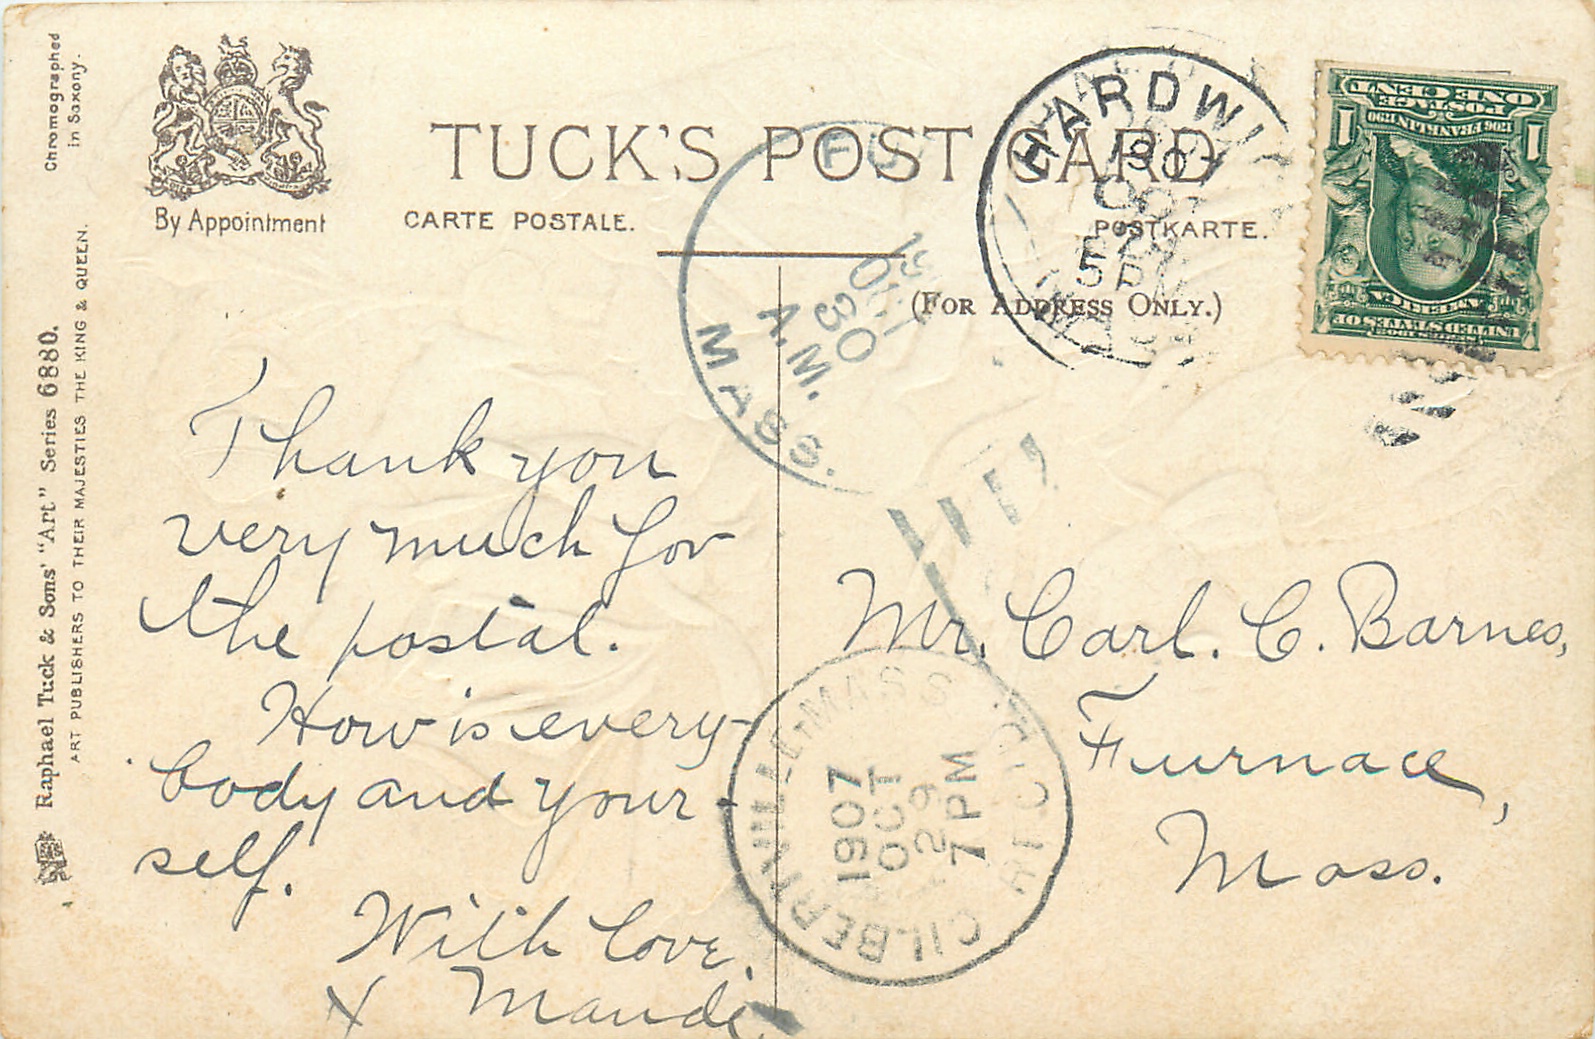 Chromographed
in Saxony.
Raphael Tuck & Sons' "Art" Series 6880.
ART PUBLISHERS TO THEIR MAJESTIES THE KING & QUEEN.
By Appointment
TUCK'S POST CARD
CARTE POSTALE.
POSTKARTE.
(FOR ADDRESS ONLY.)
HARDWICK
OCT
5 PM
POSTAGE
ONE CENT
1 1
1706 FRANKLIN 1790
UNITED STATES OF
AMERICA
OCT
30
A.M.
MASS.
Thank you
very much for
the postal.
How is every-
body and your-
self.
With love,
x Maude.
Mr. Carl. C. Barnes,
Furnace,
Mass.
GILBERTVILLE MASS
1907
OCT
29
7 PM